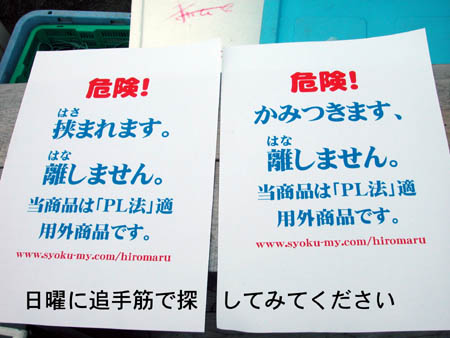 危険!
はさ
挟まれます。
はな
離しません。
当商品は「PL法」適
用外商品です。
www.syoku-my.com/hiromaru
危険!
かみつきます、
はな
離しません。
当商品は「PL法」適
用外商品です。
www.syoku-my.com/hiromaru
日曜に追手筋で探してみてください